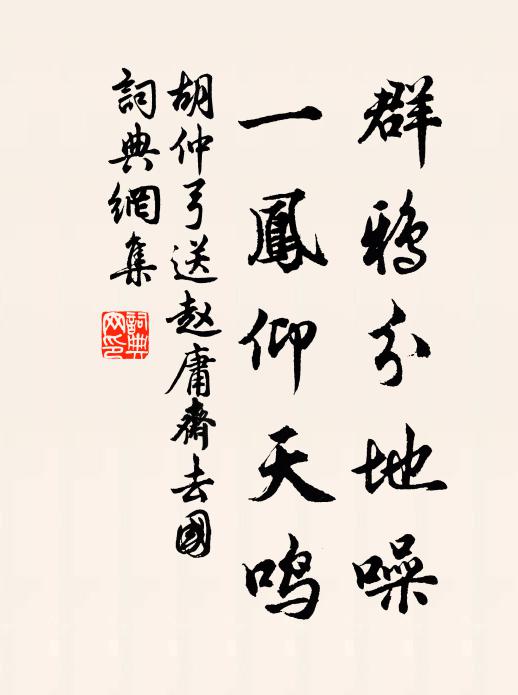 群鸦分地噪
一鳳仰天鸣
胡仲弓送赵庸齋去國
詞典網集
詞典
网印